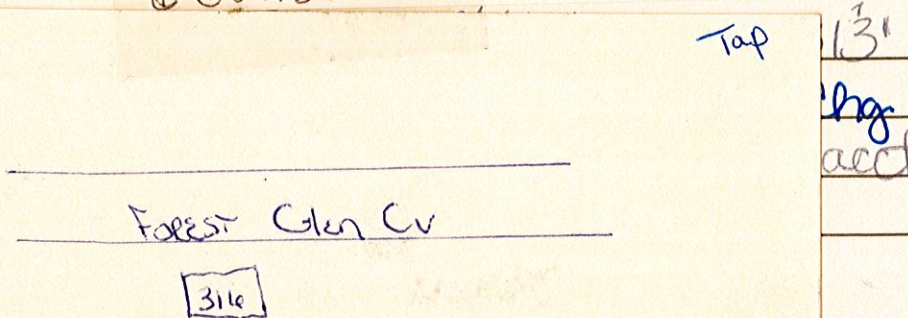 Tap
13'
Chg.
acct
Forest Glen Cv
316